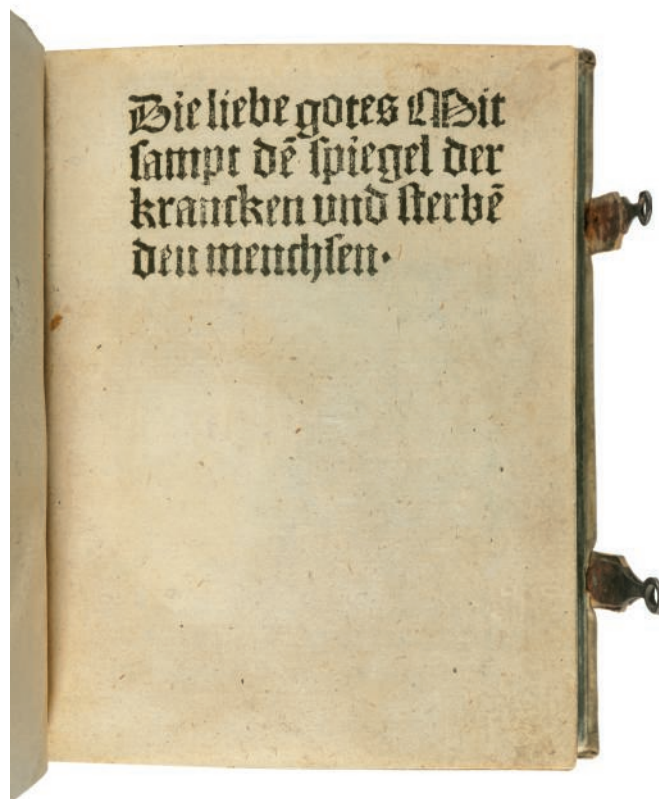 Die liebe gotes Mit
ſampt dē ſpiegel der
krancken und ſterbē
den menchſen·